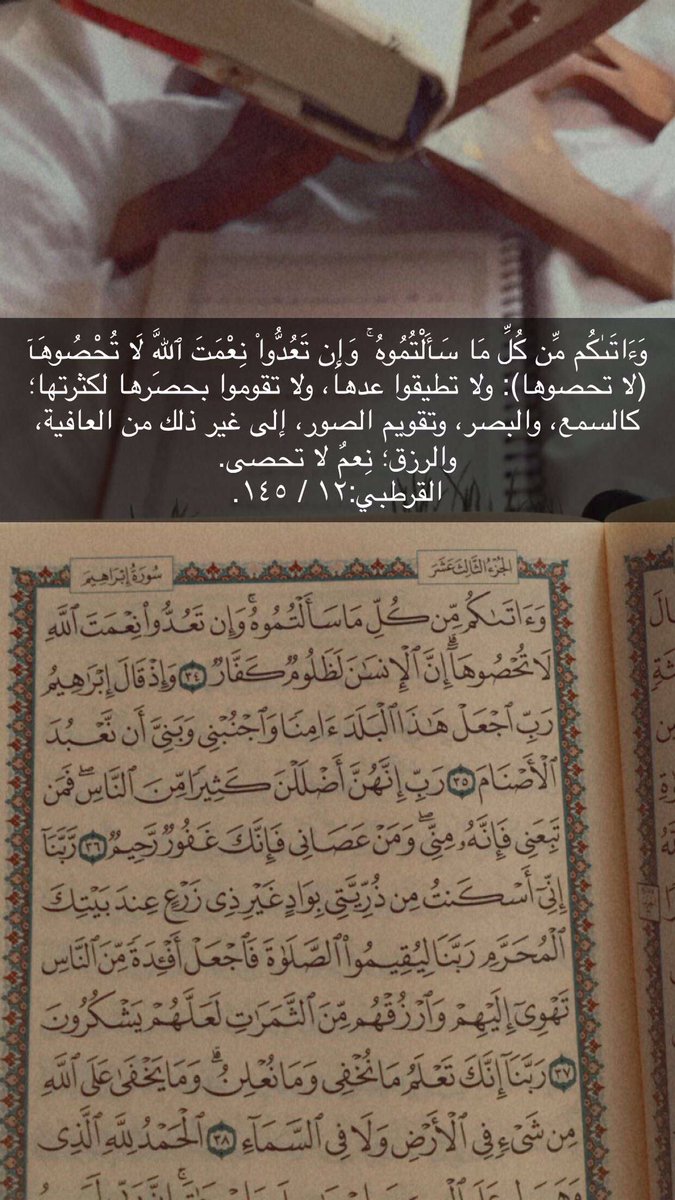 وَءَاتَىٰكُم مِّن كُلِّ مَا سَأَلْتُمُوهُ ۚ وَإِن تَعُدُّوا۟ نِعْمَتَ ٱللَّهِ لَا تُحْصُوهَآ
(لا تحصوها): ولا تطيقوا عدها، ولا تقوموا بحصَرها لكثرتها؛
كالسمع، والبصر، وتقويم الصور، إلى غير ذلك من العافية،
والرزق؛ نِعمٌ لا تحصى.
القرطبي:١٢ / ١٤٥.
الجُزْءُ الثَّالِثَ عَشَرَ
سُورَةُ إِبْرَاهِيمَ
وَءَاتَىٰكُم مِّن كُلِّ مَا سَأَلْتُمُوهُ ۚ وَإِن تَعُدُّوا۟ نِعْمَتَ ٱللَّهِ
لَا تُحْصُوهَآ ۗ إِنَّ ٱلْإِنسَٰنَ لَظَلُومٌ كَفَّارٌ ٣٤ وَإِذْ قَالَ إِبْرَٰهِيمُ
رَبِّ ٱجْعَلْ هَٰذَا ٱلْبَلَدَ ءَامِنًا وَٱجْنُبْنِى وَبَنِىَّ أَن نَّعْبُدَ
ٱلْأَصْنَامَ ٣٥ رَبِّ إِنَّهُنَّ أَضْلَلْنَ كَثِيرًا مِّنَ ٱلنَّاسِ ۖ فَمَن
تَبِعَنِى فَإِنَّهُۥ مِنِّى ۖ وَمَنْ عَصَانِى فَإِنَّكَ غَفُورٌ رَّحِيمٌ ٣٦ رَّبَّنَآ
إِنِّىٓ أَسْكَنتُ مِن ذُرِّيَّتِى بِوَادٍ غَيْرِ ذِى زَرْعٍ عِندَ بَيْتِكَ
ٱلْمُحَرَّمِ رَبَّنَا لِيُقِيمُوا۟ ٱلصَّلَوٰةَ فَٱجْعَلْ أَفْـِٔدَةً مِّنَ ٱلنَّاسِ
تَهْوِىٓ إِلَيْهِمْ وَٱرْزُقْهُم مِّنَ ٱلثَّمَرَٰتِ لَعَلَّهُمْ يَشْكُرُونَ
٣٧ رَبَّنَآ إِنَّكَ تَعْلَمُ مَا نُخْفِى وَمَا نُعْلِنُ ۗ وَمَا يَخْفَىٰ عَلَى ٱللَّهِ
مِن شَىْءٍ فِى ٱلْأَرْضِ وَلَا فِى ٱلسَّمَآءِ ٣٨ ٱلْحَمْدُ لِلَّهِ ٱلَّذِى